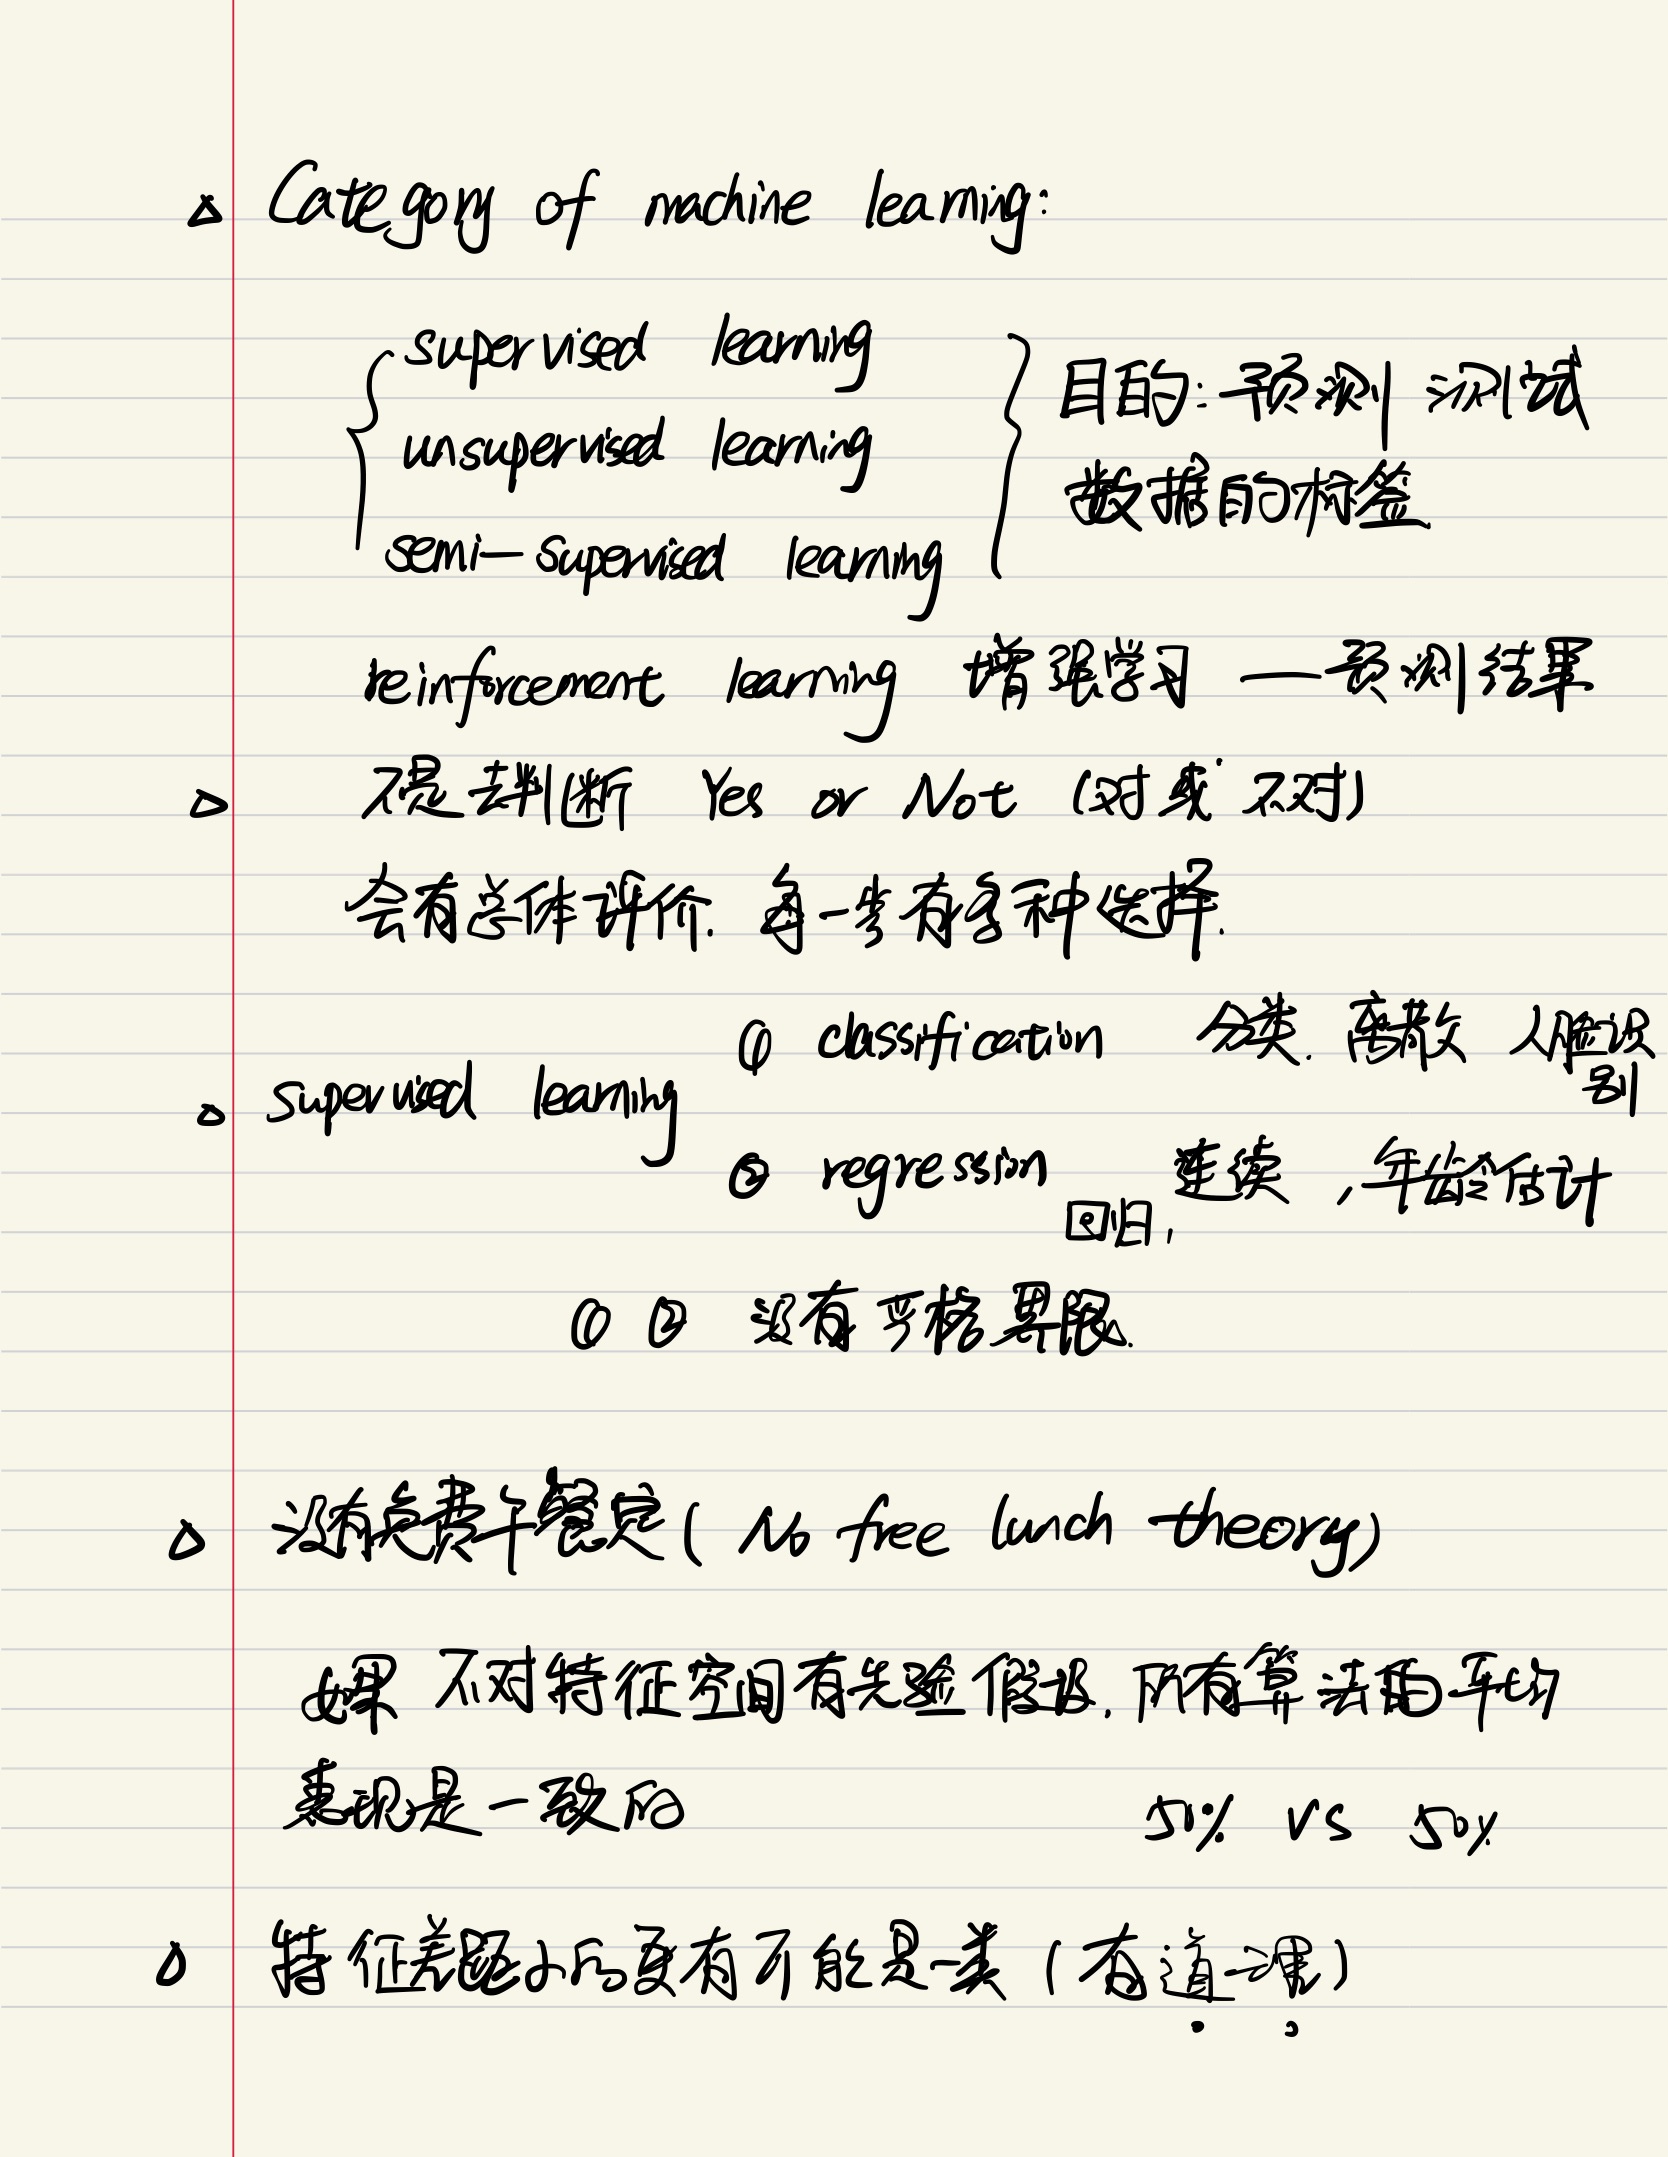 Category of machine learning:
supervised learning
unsupervised learning
semi-supervised learning
目的: 预测 测试
数据的标签
reinforcement learning 增强学习 — 预测结果
不是去判断 Yes or Not (对或不对)
会有总体评价. 每一步有多种选择.
① classification 分类. 离散 人脸识
别
supervised learning
② regression 连续 , 年龄估计
回归,
① ② 没有严格界限.
没有免费午餐定 ( No free lunch theory)
如果 不对特征空间有先验假设. 所有算法的平均
表现是一致的 50% VS 50%
特征差距小的更有可能是一类 (有道理)